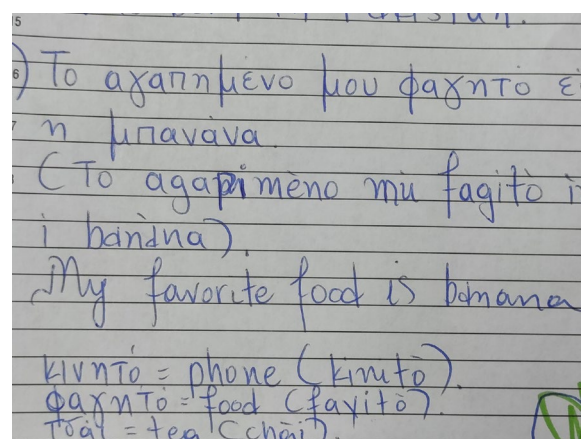 6) Το αγαπημένο μου φαγητό εί
η μπανάνα.
(To agapimèno mù fagitò ì
i banàna).
My favorite food is banana
κινητό = phone (kinitò).
φαγητό = food (fayitò).
τσάι = tea (chài).